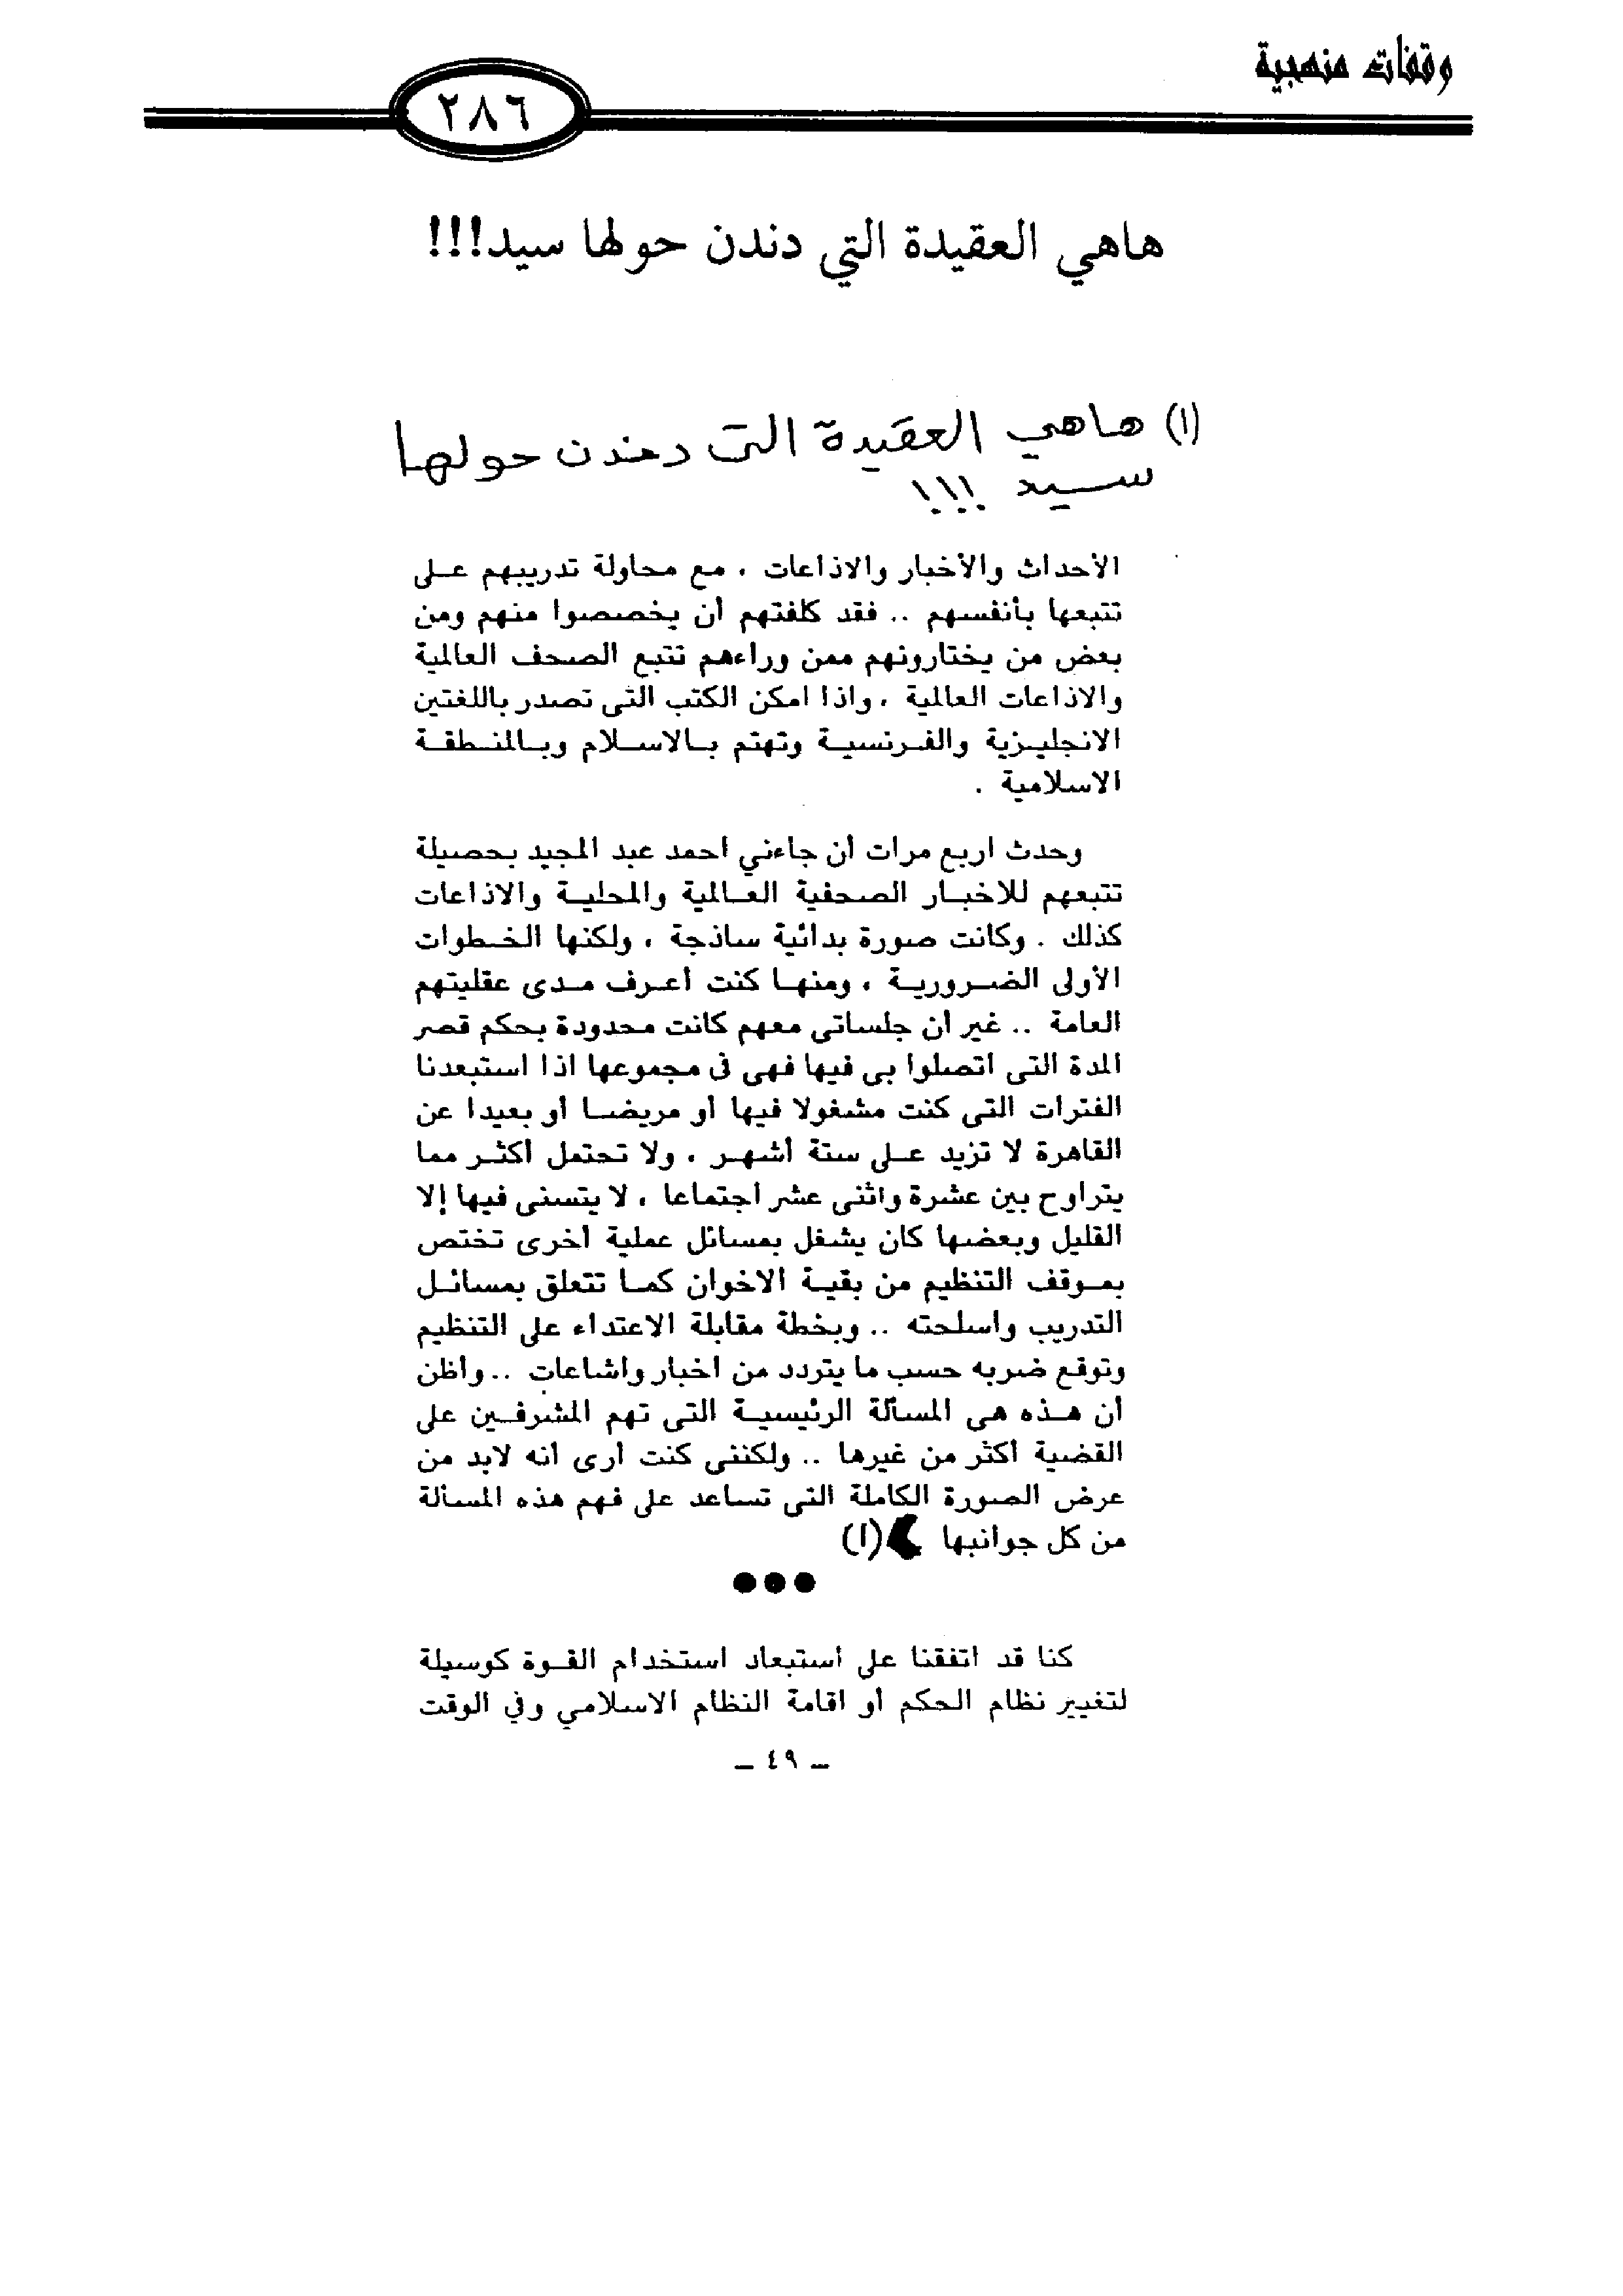 وقفات منهجية
٢٨٦
هاهي العقيدة التي دندن حولها سيد!!!
(١) هاهي العقيدة التى دندن حولها
سيد !!!
الأحداث والأخبار والاذاعات ، مع محاولة تدريبهم على
تتبعها بأنفسهم .. فقد كلفتهم أن يخصصوا منهم ومن
بعض من يختارونهم ممن وراءهم تتبع الصحف العالمية
والاذاعات العالمية ، واذا امكن الكتب التى تصدر باللغتين
الانجليزية والفرنسية وتهتم بالاسلام وبالمنطقة
الاسلامية .
وحدث اربع مرات أن جاءني احمد عبد المجيد بحصيلة
تتبعهم للاخبار الصحفية العالمية والمحلية والاذاعات
كذلك . وكانت صورة بدائية ساذجة ، ولكنها الخطوات
الأولى الضرورية ، ومنها كنت أعرف مدى عقليتهم
العامة .. غير أن جلساتى معهم كانت محدودة بحكم قصر
المدة التى اتصلوا بى فيها فهى فى مجموعها اذا استبعدنا
الفترات التى كنت مشغولا فيها أو مريضا أو بعيدا عن
القاهرة لا تزيد على ستة أشهر ، ولا تحتمل أكثر مما
يتراوح بين عشرة واثنى عشر اجتماعا ، لا يتسنى فيها إلا
القليل وبعضها كان يشغل بمسائل عملية أخرى تختص
بموقف التنظيم من بقية الاخوان كما تتعلق بمسائل
التدريب واسلحته .. وبخطة مقابلة الاعتداء على التنظيم
وتوقع ضربه حسب ما يتردد من اخبار واشاعات .. وأظن
أن هذه هى المسألة الرئيسية التى تهم المشرفين على
القضية أكثر من غيرها .. ولكننى كنت أرى أنه لابد من
عرض الصورة الكاملة التى تساعد على فهم هذه المسألة
من كل جوانبها (١)
كنا قد اتفقنا على استبعاد استخدام القوة كوسيلة
لتغيير نظام الحكم أو اقامة النظام الاسلامي وفي الوقت
ــ ٤٩ ــ